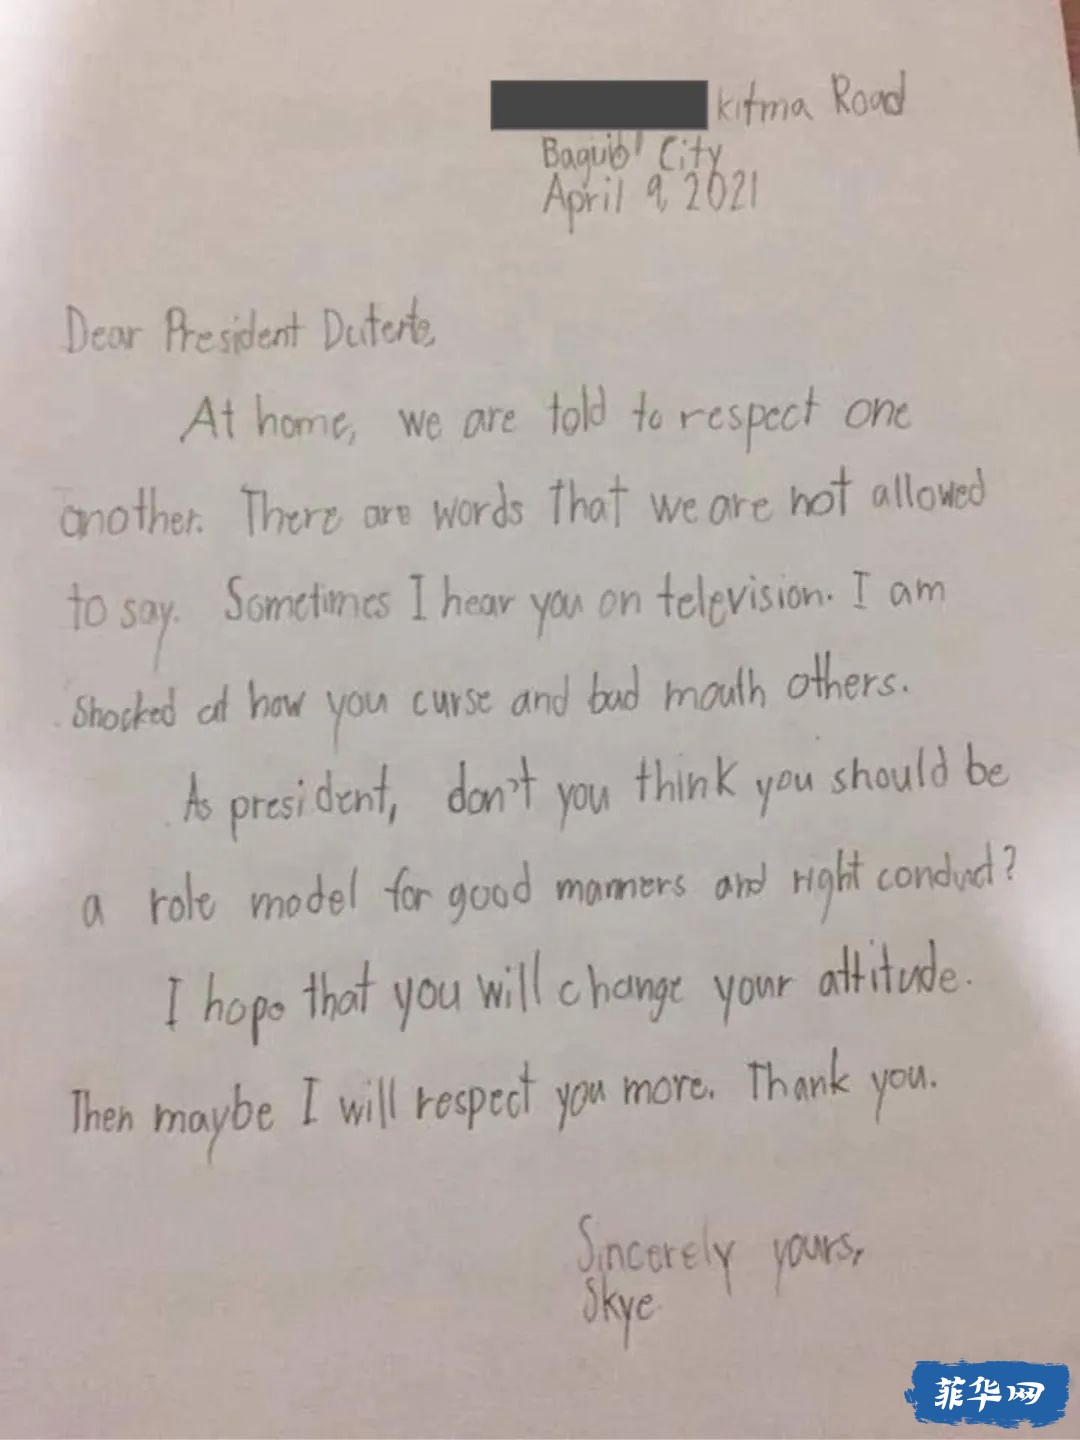 kitma Road
Baguio City
April 9, 2021
Dear President Duterte,
At home, we are told to respect one
another. There are words that we are not allowed
to say. Sometimes I hear you on television. I am
shocked at how you curse and bad mouth others.
As president, don't you think you should be
a role model for good manners and right conduct?
I hope that you will change your attitude.
Then maybe I will respect you more. Thank you.
Sincerely yours,
Skye
菲华网